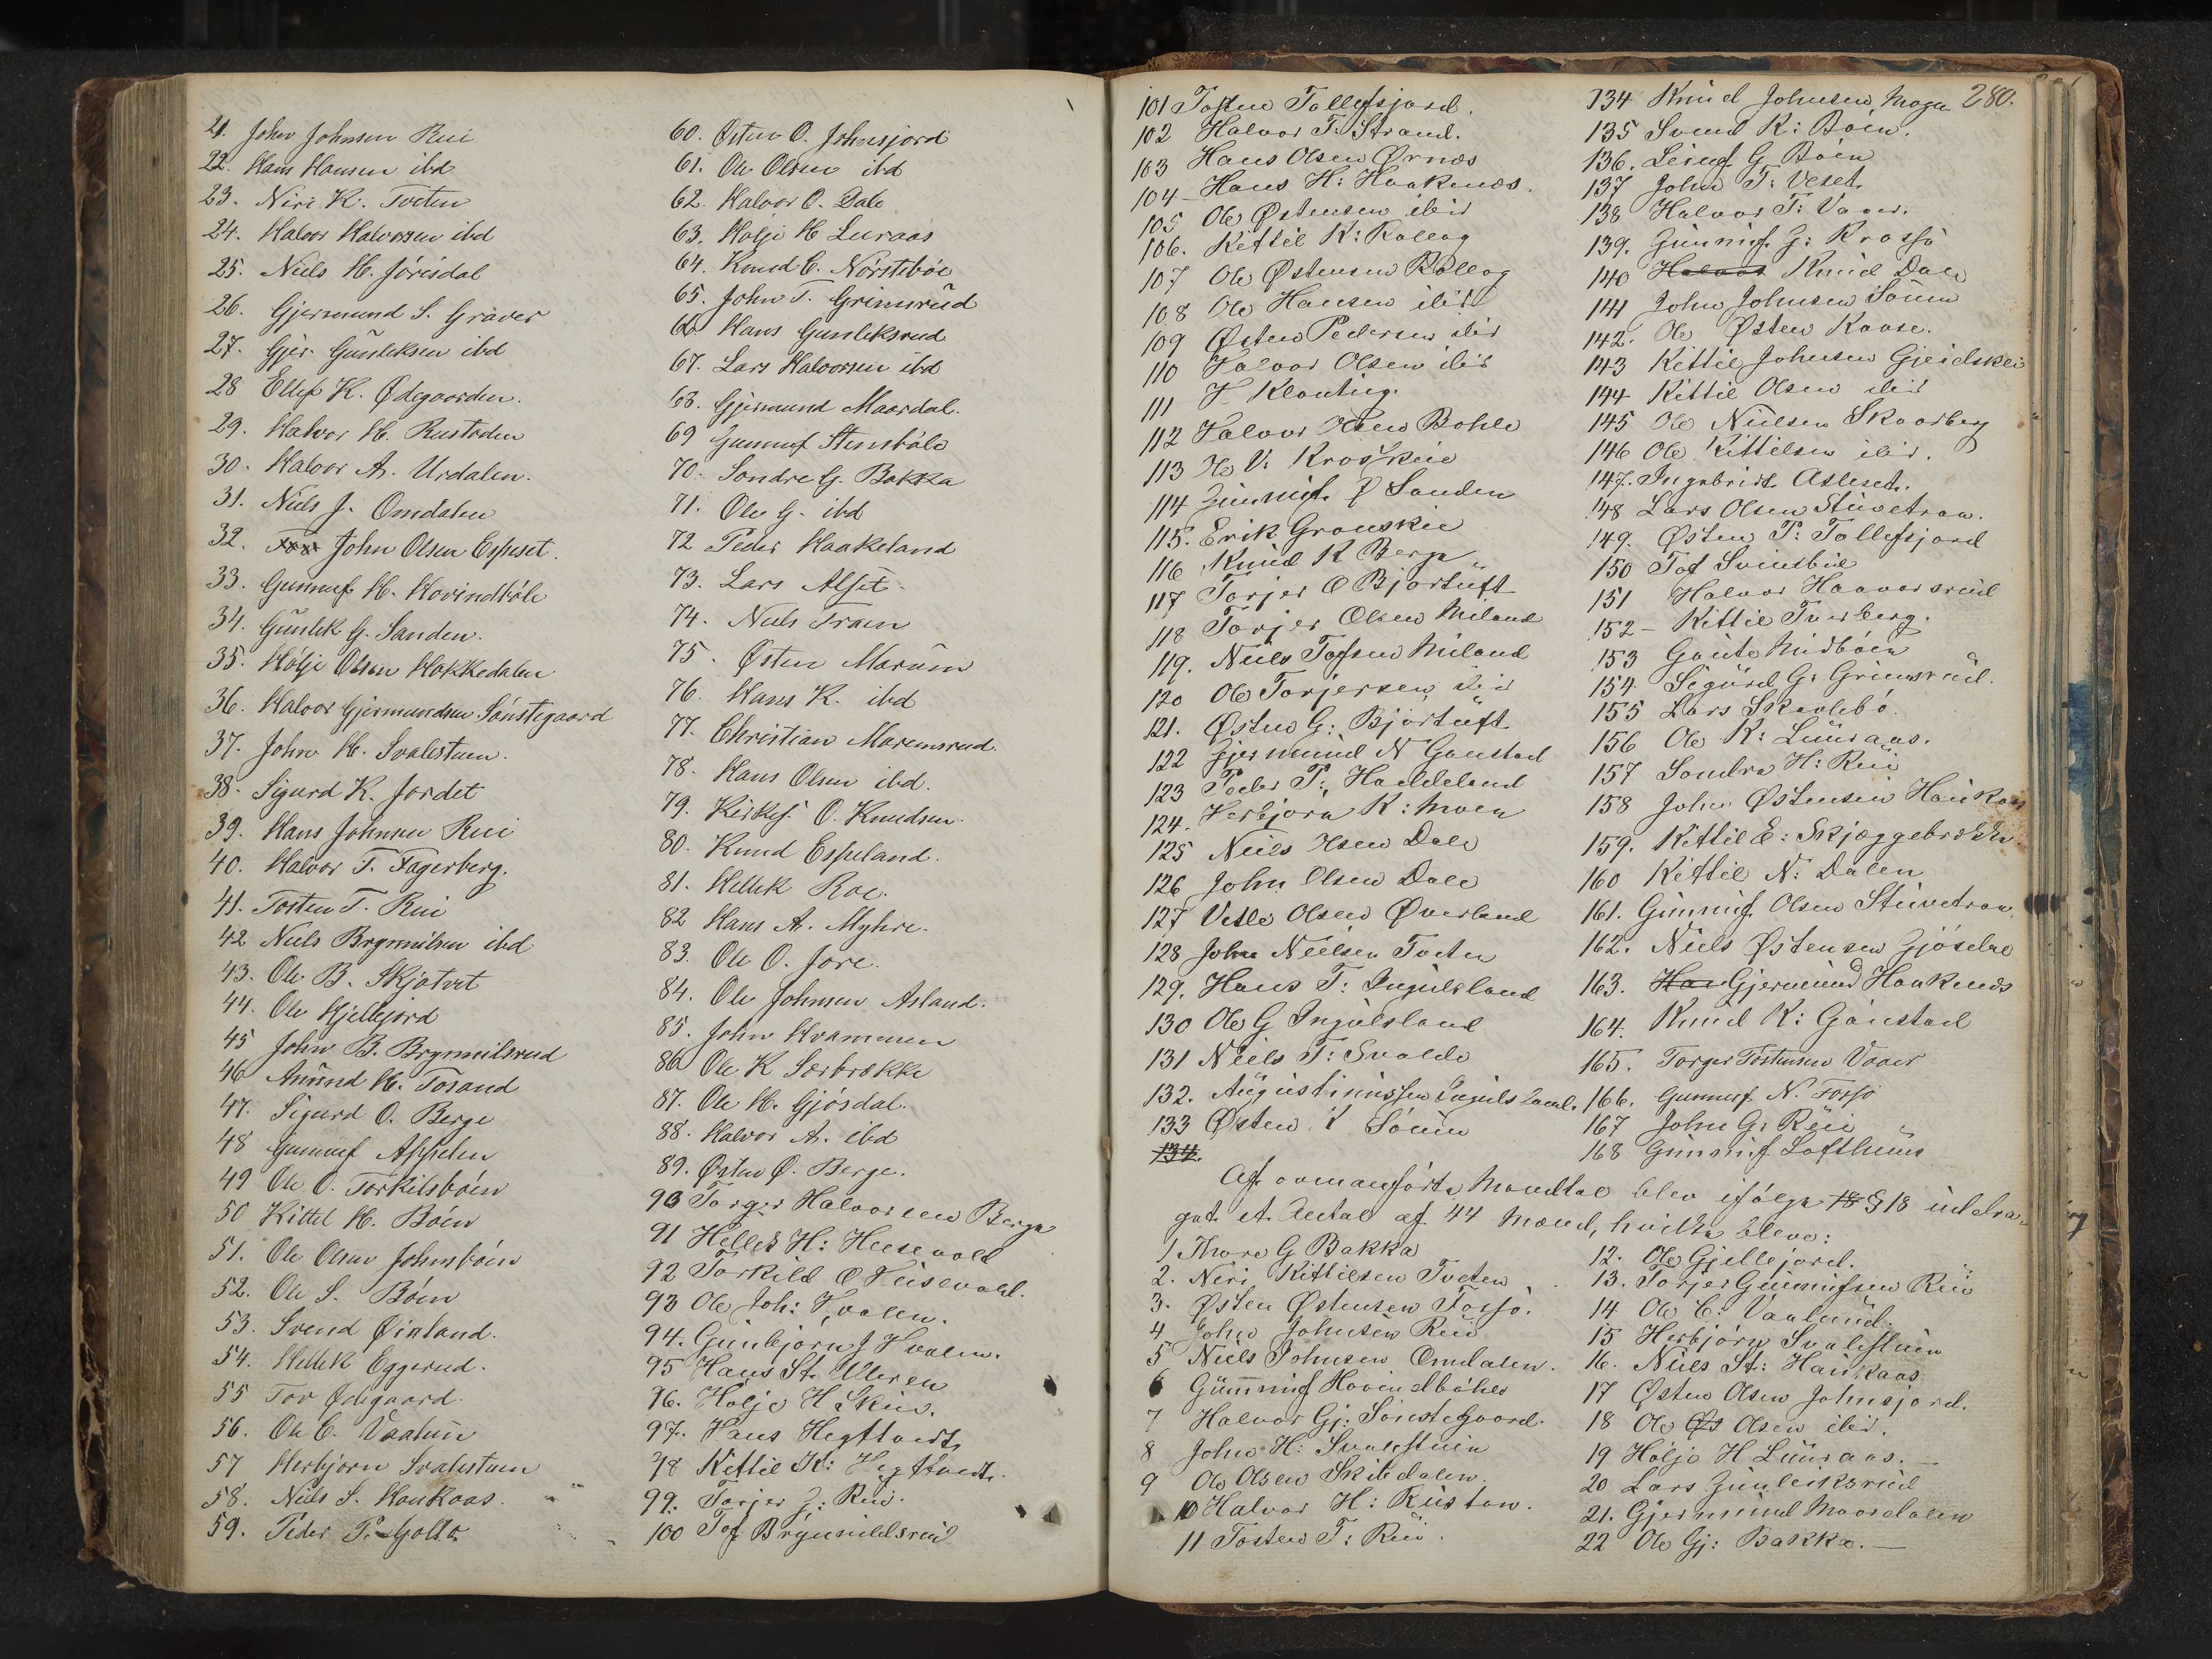 21. John Johnsen Rui
22. Hans Hansen ibd
23. Niri K. Tveten
24. Halvor Halvorsen ibd
25. Niels H. Jórisdal
26. Gjermund S. Gráver
27. Gjer. Gunleksen ibd
28 Ellef K. Ødegaarden.
29. Halvor H. Rustaden
30. Halvor A. Urdalen.
31. Niels J. Omdalen
32. John Olsen Espeset.
33. Gunnuf H. Hovindbóle
34. Gunlek G. Sanden.
35. Hólje Olsen Hokkedalen
36. Halvor Gjermundsen Sónstegaard
37. John H. Svalestuen.
38. Sigurd K. Jordet
39. Hans Johnsen Rui
40. Halvor T. Fagerberg.
41. Tosten T. Rui
42 Niels Brynnilsen ibd
43. Ole B. Skjótvet
44. Ole Gjellejord
45 John B. Brynnilsrud
46 Amund H. Tosand
47. Sigurd O. Berge
48 Gunnuf Appelen
49 Ole O. Torkilsbóen
50 Kittel H. Bóen
51. Ole Olsen Johnsbóen
52. Ole S. Bóen
53. Svend Øialand.
54. Hellek Eggerud.
55 Tov Ødegaard.
56. Ole C. Vaalun
57 Herbjorn Svalestuen
58. Niels S. Haukaas.
59. Peder P. Golla
60. Østen O. Johnsjord
61. Ole Olsen ibd
62. Halvor O. Dale
63. Hólje H Luraas
64. Knud E. Nórstebóe
65. John T. Grimsrud
66 Hans Gunleksrud
67. Lars Halvorsen ibd
68. Gjermund Maardal.
69 Gunnuf Stensbóle
70. Sondre G. Bakka
71. Ole G. ibd
72 Peder Haakeland
73. Lars Alset.
74. Niels Traen
75. Østen Marum
76. Hans K. ibd
77. Christian Maremsrud.
78. Hans Olsen ibd.
79. Kirkesj. O. Knudsen.
80. Knud Espeland.
81. Hellek Roe.
82 Hans A. Myhre.
83. Ole O. Jore.
84. Ole Johnsen Asland.
85. John Kvammen
86 Ole K Sórbrekke
87. Ole H. Gjósdal.
88. Halvor A. ibd
89. Østen Ø. Berge.
90 Torger Halvorsen Berge
91 Hellek H: Heisevold
92 Torkild O Heisevold.
93 Ole Joh: Hvalen.
94. Gunbjórn J Hvalen.
95 Hans St. Ulleren
96. Hólje H Skeie.
97. Hans Hegtvedt
98 Kittil K: Hegtvedt.
99. Torjer G: Rui.
100 Tof Brynildsrud
101 Tosten Tollefsjord.
102 Halvor T: Strand.
103 Hans Olsen Ørnæs
104 Hans H: Haakenæs.
105 Ole Østensen ibid
106. Kittil K: Rollag
107 Ole Østensen Rollag
108 Ole Hansen ibid
109 Østen Pedersen ibid
110 Halvor Olsen ibid
111 H Klonting.
112 Halvor Olsen Bohle
113 Ole V: Kroskeie
114 Gunnuf. Ø Sanden
115. Erik Gronskie
116 Knud K Berge
117 Torjer O Bjortuft
118 Torjer Olsen Miland
119. Niels Tofsen Miland
120 Ole Torjersen ibid
121. Østen G: Bjórtuft.
122 Gjermund N Gaustad
123 Peder P: Haddeland
124. Herbjórn K: Moen
125 Niels Olsen Dale
126 John Olsen Dale
127 Vetle Olsen Øverland
128 John Nielsen Tveten
129. Hans T: Ingulsland
130 Ole G Ingulsland
131 Niels T: Svalde
132. Augustinussen Ingulsland.
133 Østen K Sóum
134.
134 Knud Johnsen Moga 280.
135 Svend K: Bóen.
136. Leiuf. G Bóen
137 John T: Veset.
138 Halvor T: Vaaer.
139. Gunnuf. G: Krossó
140 Halvor Knud Dale
141 John Johnsen Sóum
142. Ole Østen Kaase.
143 Kittil Johnsen Gjeidskei
144 Kittil Olsen ibid
145 Ole Nielsen Skaarberg
146 Ole Kittilsen ibid.
147. Ingebrict. Asleset.
148 Lars Olsen Stuvetraa.
149. Østen P: Tollefsjord
150 Tof Sviesbie
151 Halvor Haavarsrud
152 – Kittil Tverberg.
153 Gaute Midbóen
154 Sigurd G: Grimsrud.
155 Lars Skavlebó.
156 Ole K: Luuraas.
157 Sondre H: Rui
158 John Østensen Haukaas
159. Kittil E: Skjæggebrekke.
160 Kittil N: Dalen
161. Gunnuf Olsen Stuvetraa.
162. Niels Østensen Gjósdal
163. Han Gjermund Haakenæs
164. Knud K: Gaustad
165. Torger Tostensen Vaaer
166. Gunnuf N. Fossó
167 John G: Rui
168 Gunnuf Lofthuus
Af ovenanfórte Mandtal blev ifólge 18 § 18 uddra-
get et Antal af 44 Mænd, hvilke bleve:
1 Thore G Bakka
2. Niri Kittilsen Tveten
3. Østen Østensen Fossó.
4 John Johnsen Rui
5 Niels Johnsen Omdalen.
6 Gunnuf Hovindbóhle
7 Halvor Gj: Sónstegaard.
8 John H: Svalestuen
9 Ole Olsen Skibdalen.
10 Halvor H: Rustan.
11 Tosten T: Rui.
12. Ole Gjellejord.
13. Torjer Gunnufsen Rui
14 Ole C: Vaalund.
15 Herbjórn Svalestuen
16. Niels St: Haukaas
17 Østen Olsen Johnsjord.
18 Ole Øs Olsen ibid.
19 Hólje H Luuraas. –
20 Lars Gunleiksrud
21. Gjermund Maardalen
22 Ole Gj: Bakka. –